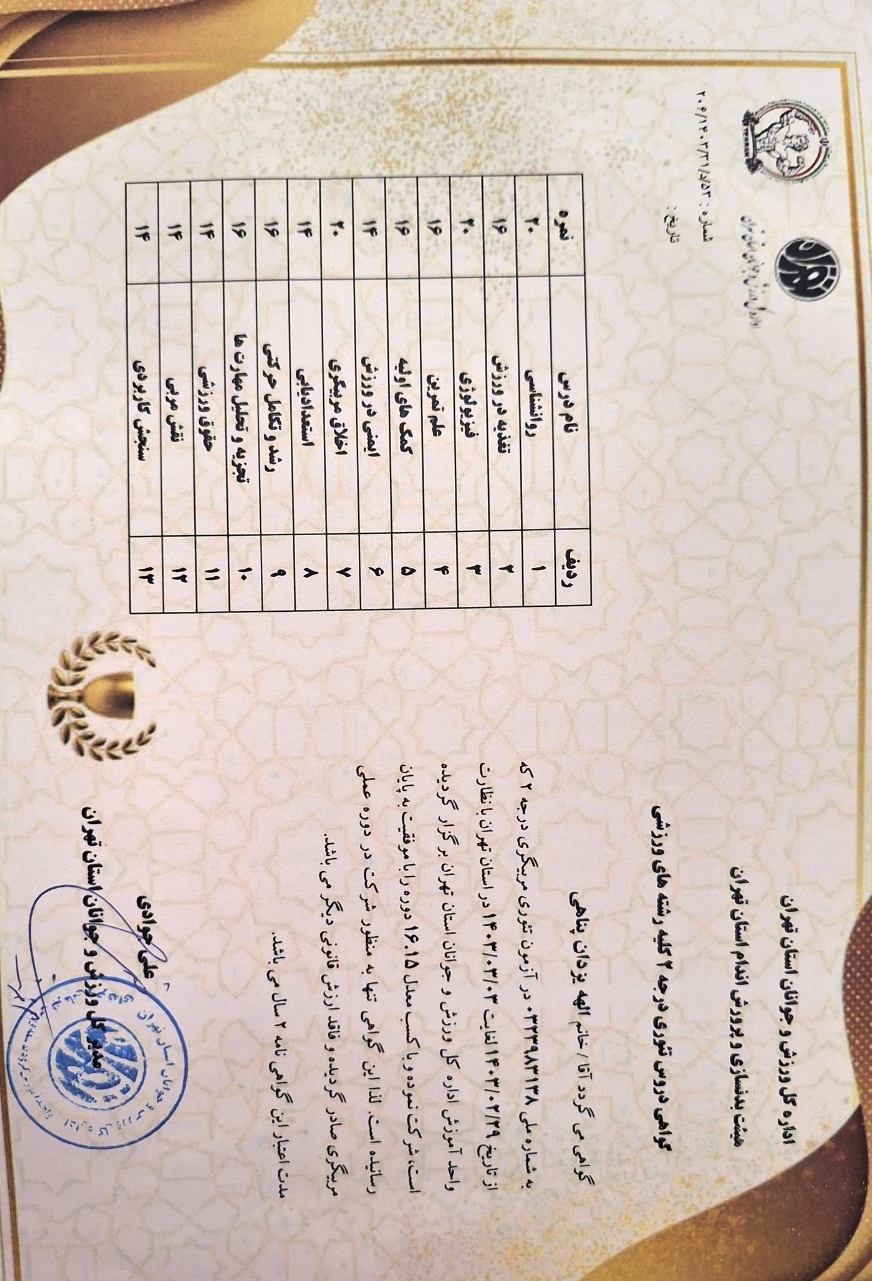 اداره کل ورزش و جوانان استان تهران
هیئت بدنسازی و پرورش اندام استان تهران
گواهی دروس تئوری درجه ۲ کلیه رشته های ورزشی
شماره : ۲۰۶/۱۴۰۳/۳۱/۵/۵۳
تاریخ :
گواهی می گردد آقا / خانم الهه یزدان پناهی
به شماره ملی ۰۳۲۳۹۸۳۱۳۸ در آزمون تئوری مربیگری درجه ۲ که
از تاریخ ۱۴۰۳/۰۲/۲۹ لغایت ۱۴۰۳/۰۳/۰۳ در استان تهران با نظارت
واحد آموزش اداره کل ورزش و جوانان استان تهران برگزار گردیده
است، شرکت نموده و با کسب معدل ۱۶.۱۵ دوره را با موفقیت به پایان
رسانیده است. لذا این گواهی تنها به منظور شرکت در دوره عملی
مربیگری صادر گردیده و فاقد ارزش قانونی دیگر می باشد.
مدت اعتبار این گواهی نامه ۲ سال می باشد.
علی جوادی
مدیر کل ورزش و جوانان استان تهران
ردیف نام درس نمره
۱ روانشناسی ۲۰
۲ تغذیه در ورزش ۱۶
۳ فیزیولوژی ۲۰
۴ علم تمرین ۱۶
۵ کمک های اولیه ۱۶
۶ ایمنی در ورزش ۱۴
۷ اخلاق مربیگری ۲۰
۸ استعدادیابی ۱۴
۹ رشد و تکامل حرکتی ۱۶
۱۰ تجزیه و تحلیل مهارت ها ۱۶
۱۱ حقوق ورزشی ۱۴
۱۲ نقش مربی ۱۴
۱۳ سنجش کاربردی ۱۴